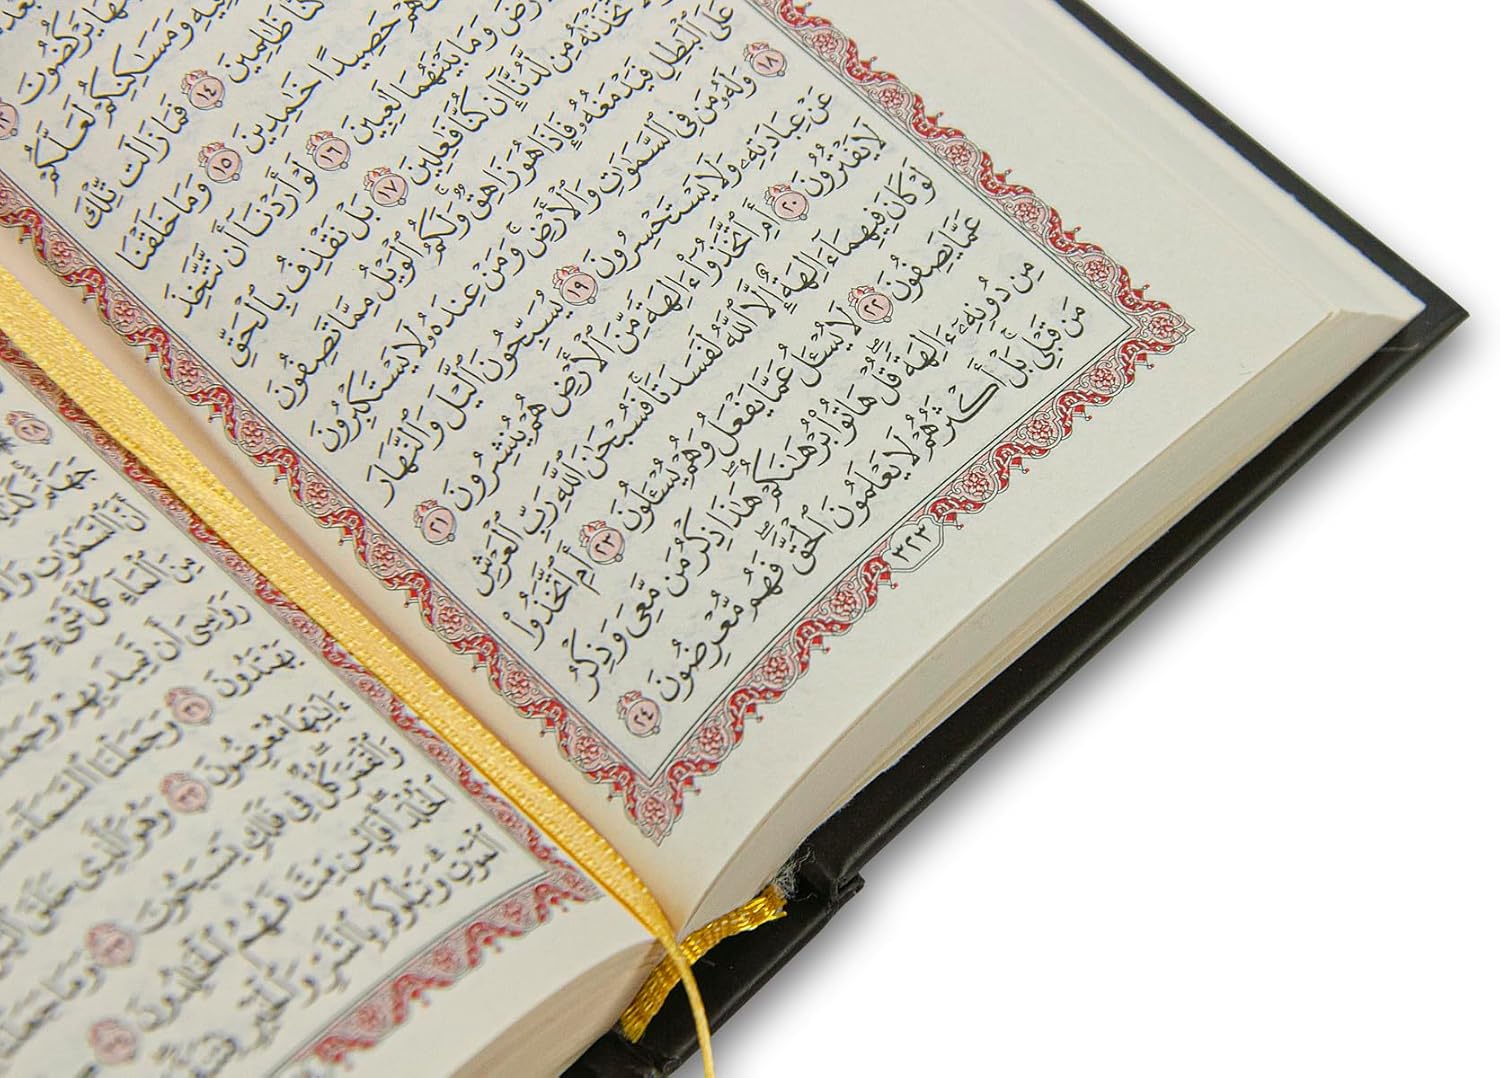 يَرْكُضُونَ
وَمَسَٰكِنِكُمْ لَعَلَّكُمْ
كُنَّا ظَٰلِمِينَ ١٤ فَمَا زَالَت تِّلْكَ
حَصِيدًا خَٰمِدِينَ ١٥ وَمَا خَلَقْنَا
وَمَا بَيْنَهُمَا لَٰعِبِينَ ١٦ لَوْ أَرَدْنَآ أَن نَّتَّخِذَ
لَّٱتَّخَذْنَٰهُ مِن لَّدُنَّآ إِن كُنَّا فَٰعِلِينَ ١٧ بَلْ نَقْذِفُ بِٱلْحَقِّ
عَلَى ٱلْبَٰطِلِ فَيَدْمَغُهُۥ فَإِذَا هُوَ زَاهِقٌ ۚ وَلَكُمُ ٱلْوَيْلُ مِمَّا تَصِفُونَ
١٨ وَلَهُۥ مَن فِى ٱلسَّمَٰوَٰتِ وَٱلْأَرْضِ ۚ وَمَنْ عِندَهُۥ لَا يَسْتَكْبِرُونَ
عَنْ عِبَادَتِهِۦ وَلَا يَسْتَحْسِرُونَ ١٩ يُسَبِّحُونَ ٱلَّيْلَ وَٱلنَّهَارَ
لَا يَفْتُرُونَ ٢٠ أَمِ ٱتَّخَذُوٓا۟ ءَالِهَةً مِّنَ ٱلْأَرْضِ هُمْ يُنشِرُونَ ٢١
لَوْ كَانَ فِيهِمَآ ءَالِهَةٌ إِلَّا ٱللَّهُ لَفَسَدَتَا ۚ فَسُبْحَٰنَ ٱللَّهِ رَبِّ ٱلْعَرْشِ
عَمَّا يَصِفُونَ ٢٢ لَا يُسْـَٔلُ عَمَّا يَفْعَلُ وَهُمْ يُسْـَٔلُونَ ٢٣ أَمِ ٱتَّخَذُوا۟
مِن دُونِهِۦٓ ءَالِهَةً ۖ قُلْ هَاتُوا۟ بُرْهَٰنَكُمْ ۖ هَٰذَا ذِكْرُ مَن مَّعِىَ وَذِكْرُ
مَن قَبْلِى ۗ بَلْ أَكْثَرُهُمْ لَا يَعْلَمُونَ ٱلْحَقَّ ۖ فَهُم مُّعْرِضُونَ ٢٤
٣٢٣
٢٨
جَهَنَّمَ ۚ
أَنَّ ٱلسَّمَٰوَٰتِ
مِنَ ٱلْمَآءِ كُلَّ شَىْءٍ حَىٍّ
رَوَٰسِىَ أَن تَمِيدَ بِهِمْ وَجَعَلْنَا
يَهْتَدُونَ ٣١ وَجَعَلْنَا ٱلسَّمَآءَ
ءَايَٰتِهَا مُعْرِضُونَ ٣٢ وَهُوَ ٱلَّذِى خَلَقَ
وَٱلْقَمَرَ ۖ كُلٌّ فِى فَلَكٍ يَسْبَحُونَ ٣٣ وَمَا جَعَلْنَا
ٱلْخُلْدَ ۖ أَفَإِي۟ن مِّتَّ فَهُمُ ٱلْخَٰلِدُونَ ٣٤
ٱلْمَوْتِ ۗ وَنَبْلُوكُم بِٱلشَّرِّ وَٱلْخَيْرِ فِتْنَةً